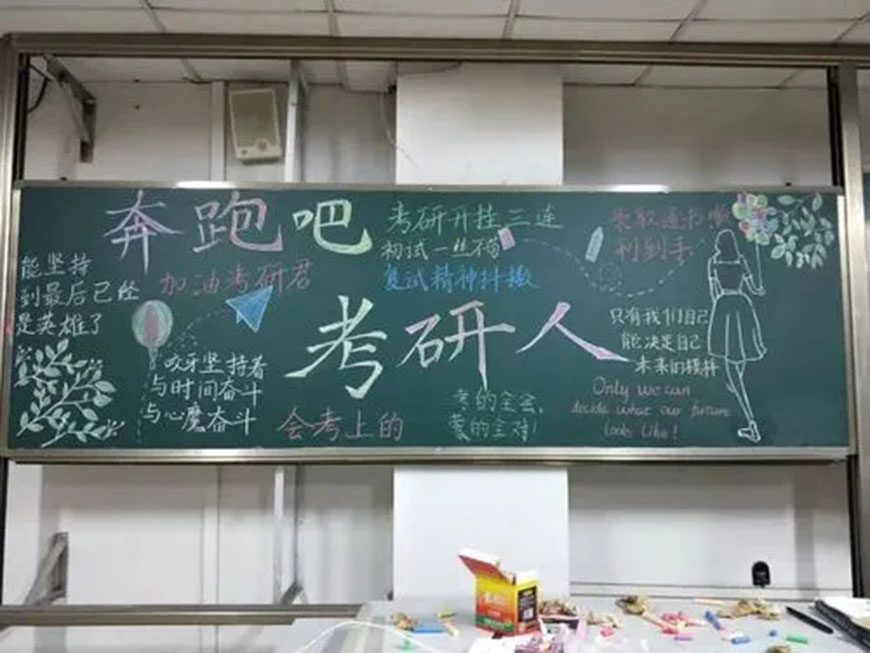 奔跑吧
考研开挂三连
初试一丝不苟
复试精神抖擞
录取通书嘟
利到手
能坚持
到最后已经
是英雄了
加油考研君
考研人
咬牙坚持着
与时间奋斗
与心魔奋斗
会考上的
考的全会,
蒙的全对!
只有我们自己
能决定自己
未来的模样
Only we can
decide what our future
looks like!